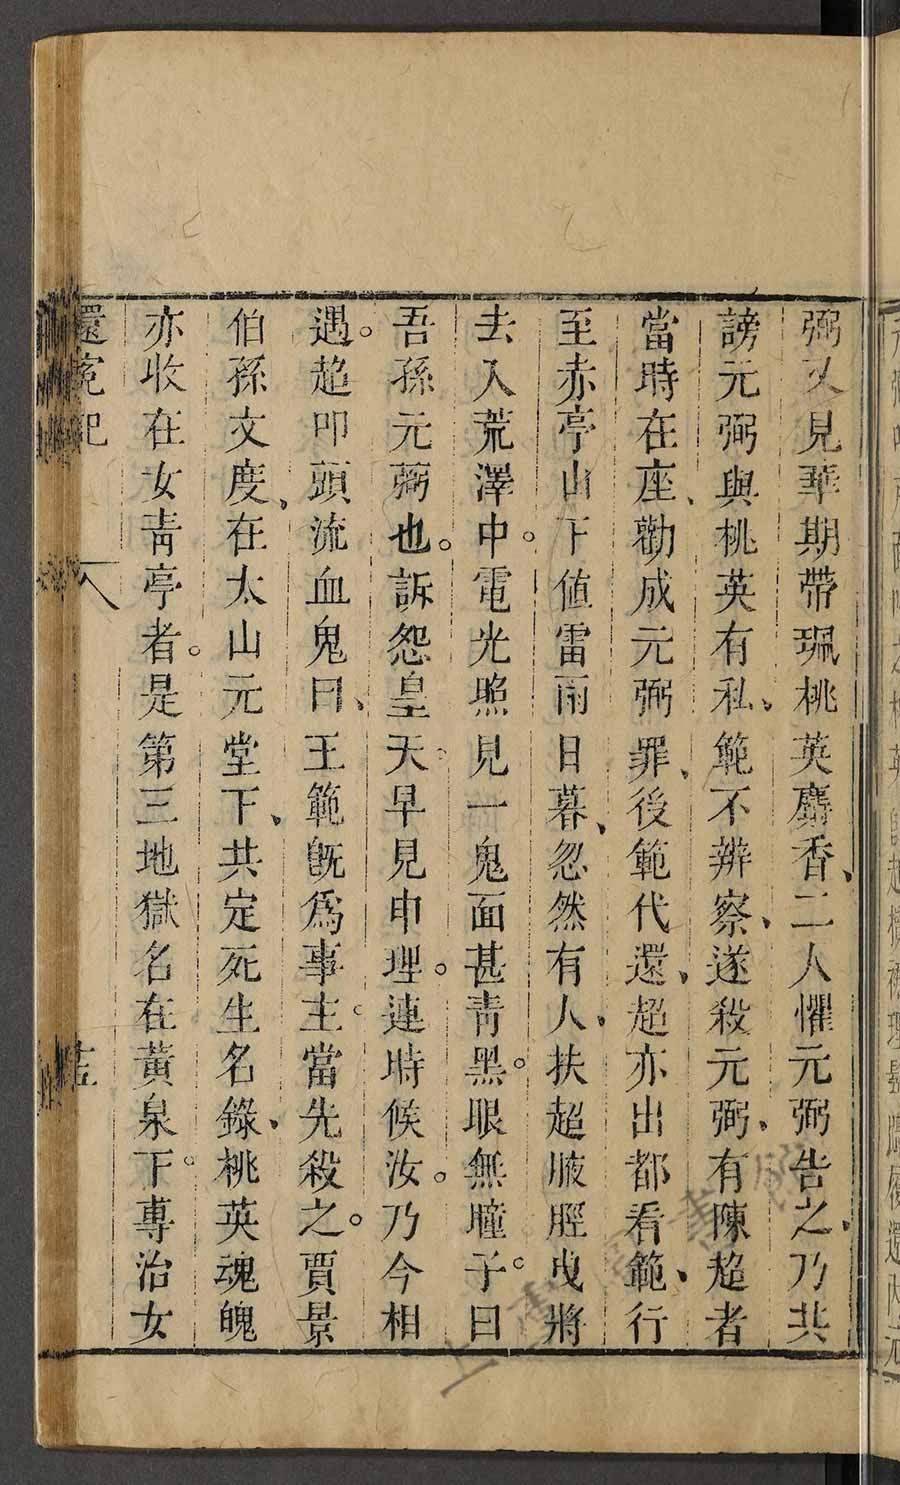 弼又見華期帶珮桃英麝香、二人懼元弼告之、乃共
謗元弼與桃英有私、範不辨察、遂殺元弼、有陳超者
當時在座、勸成元弼罪、後範代還、超亦出都看範、行
至赤亭山下値雷雨日暮、忽然有人、扶超腋脛曳將
去入荒澤中。電光照見一鬼面甚青黑。眼無瞳子。曰
吾孫元弼也。訴怨皇天。早見申理。連時候汝。乃今相
遇。超叩頭流血鬼曰、王範旣爲事主。當先殺之。賈景
伯孫文度、在太山元堂下、共定死生名錄、桃英魂魄
亦收在女靑亭者。是第三地獄名在黃泉下。專治女
還冤記